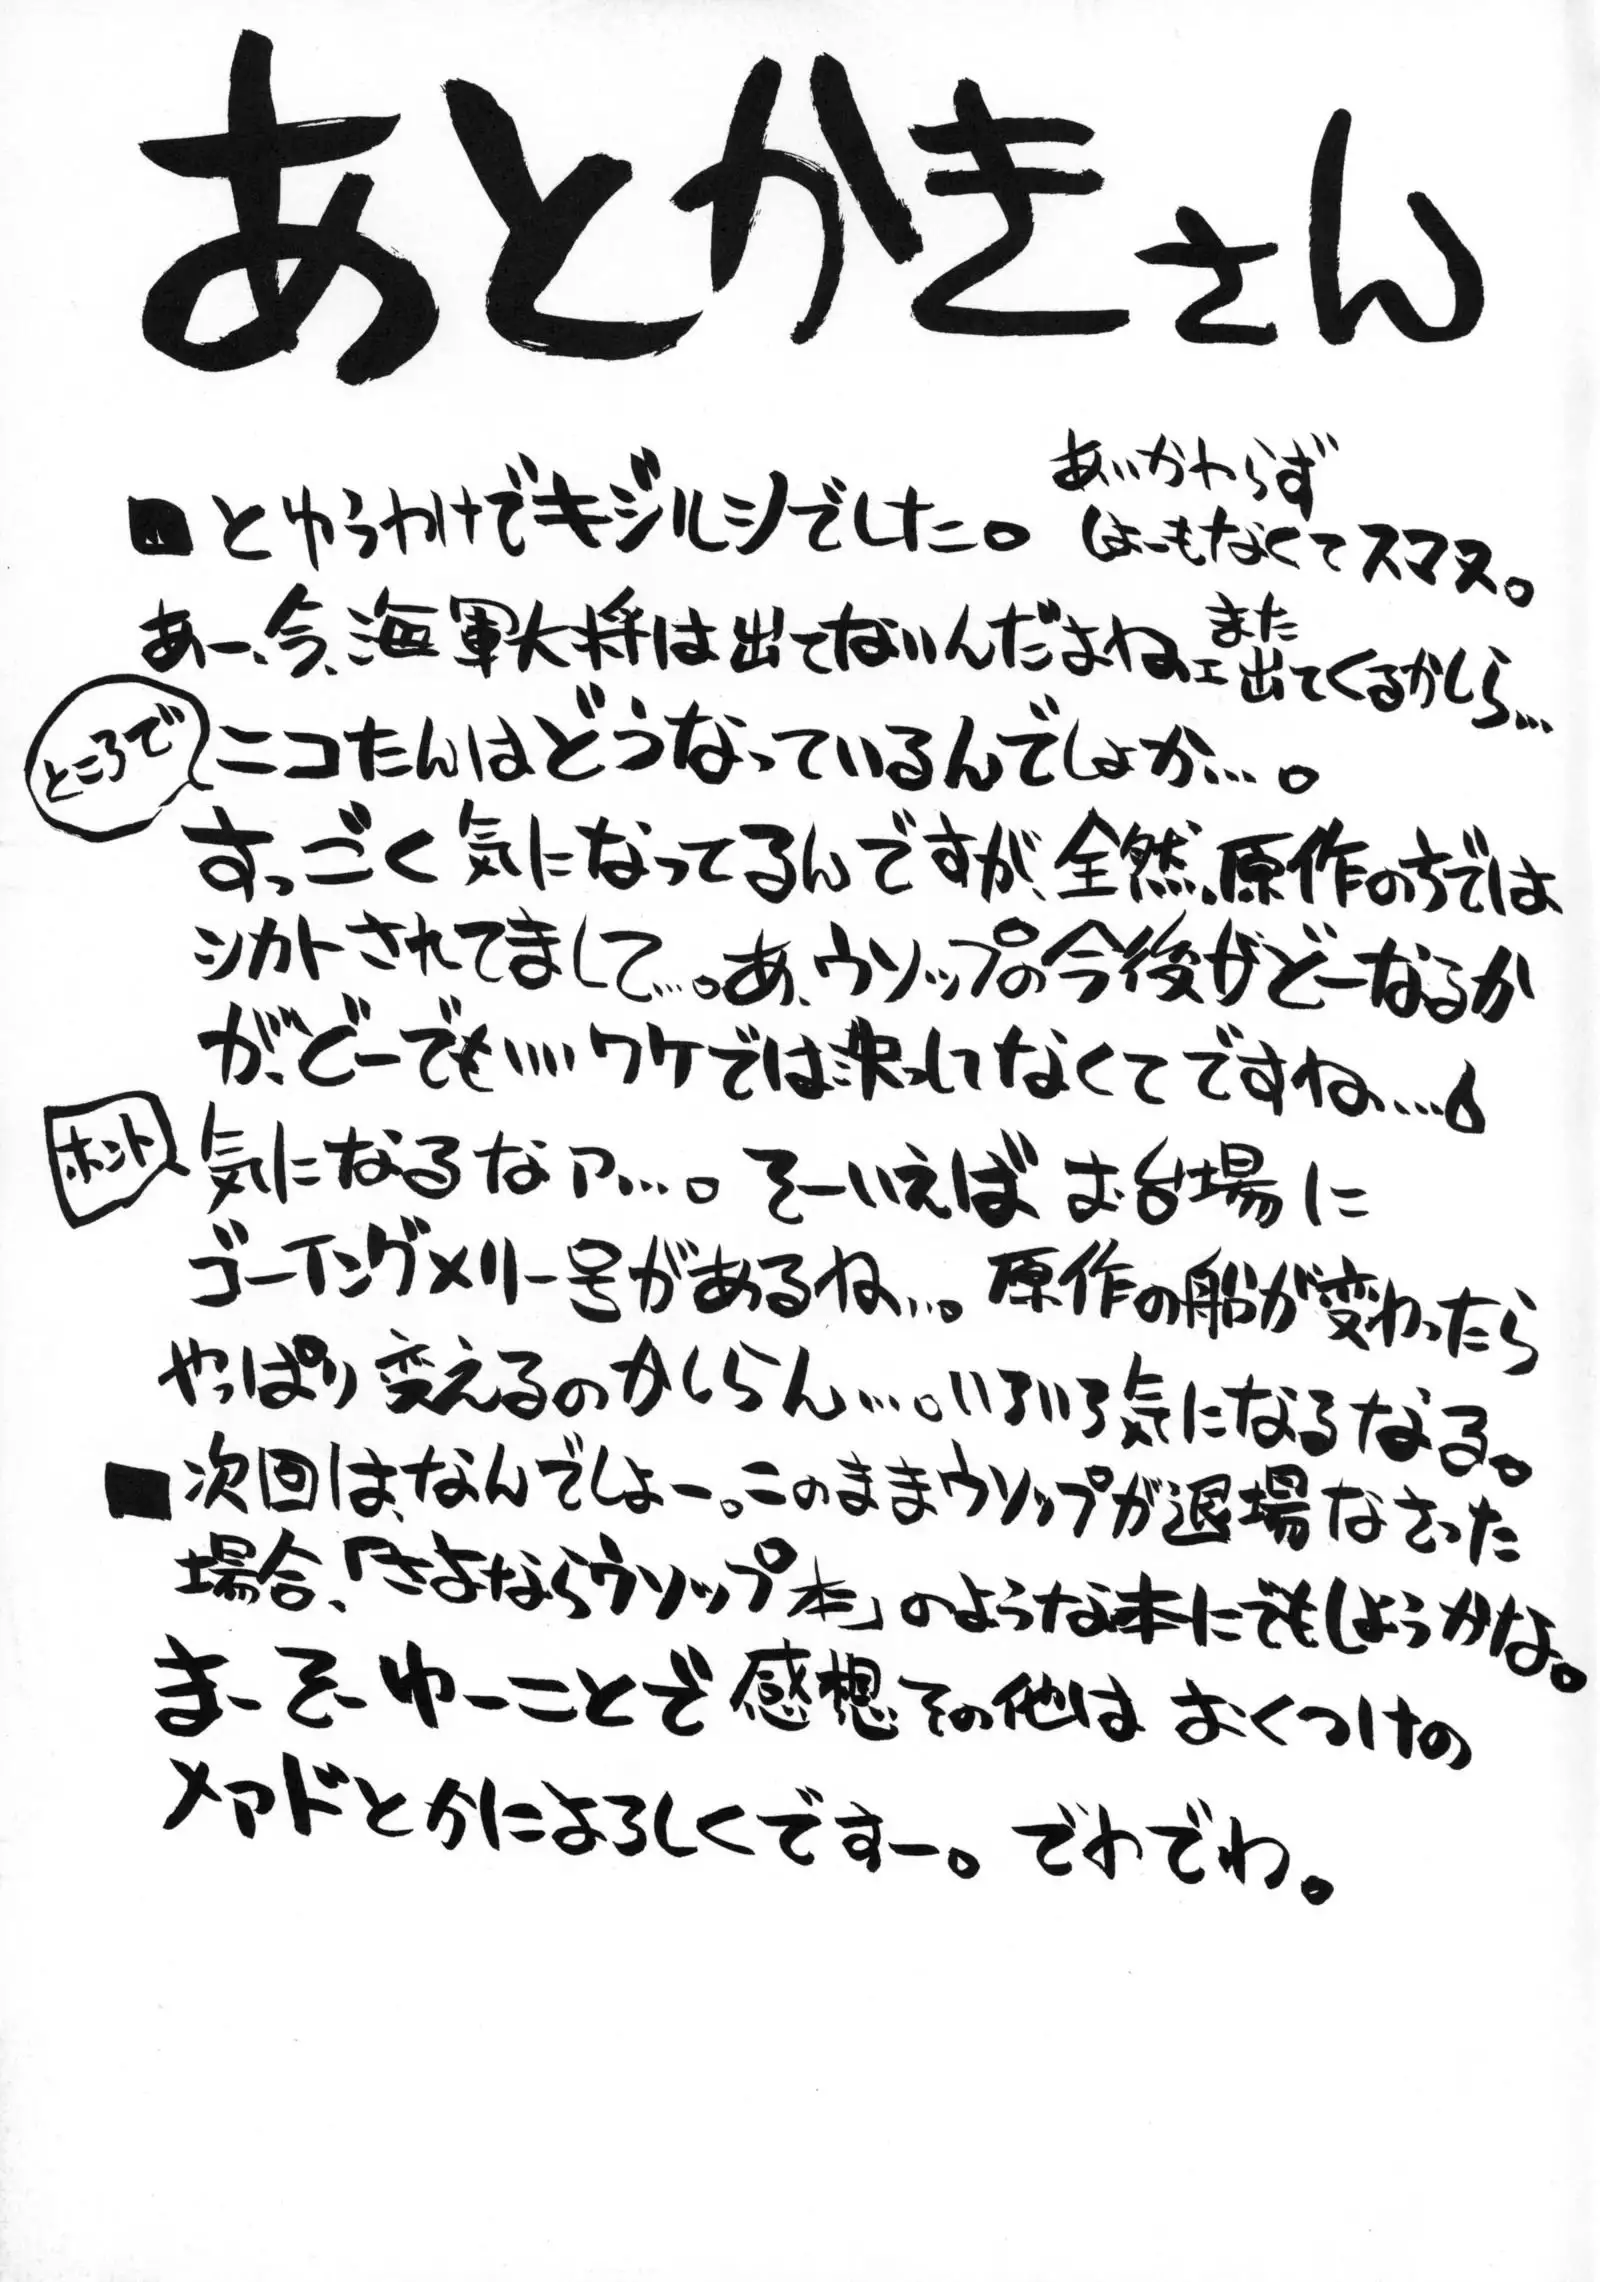 あとかきさん
■とゆうわけでキジルシでした。 あいかわらず
しょーもなくてスマヌ。
あー、今、海軍大将は出てないんだよねェ また
出てくるかしら…
ところで ニコたんはどうなっているんでしょか…。
すっごく気になってるんですが、全然、原作のちでは
シカトされてまして…。あ、ウソップの今後がどーなるか
が、どーでもいい…ワケでは決っしてなくてですね…。
ホント 気になるなァ…。そーいえばお台場に
ゴーイングメリー号があるね…。原作の船が変わったら
やっぱり変えるのかしらん…。いろいろ気になるなる。
■次回は、なんでしょー。このままウソップが退場なさった
場合、「さよならウソップ本」のような本にでもしようかな。
まーそーゆーことで感想その他は おくつけの
メアドとかによろしくですー。でわでわ。